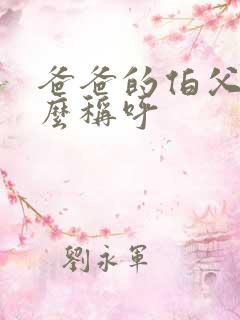 爸爸的伯父
麼稱呼
劉永軍